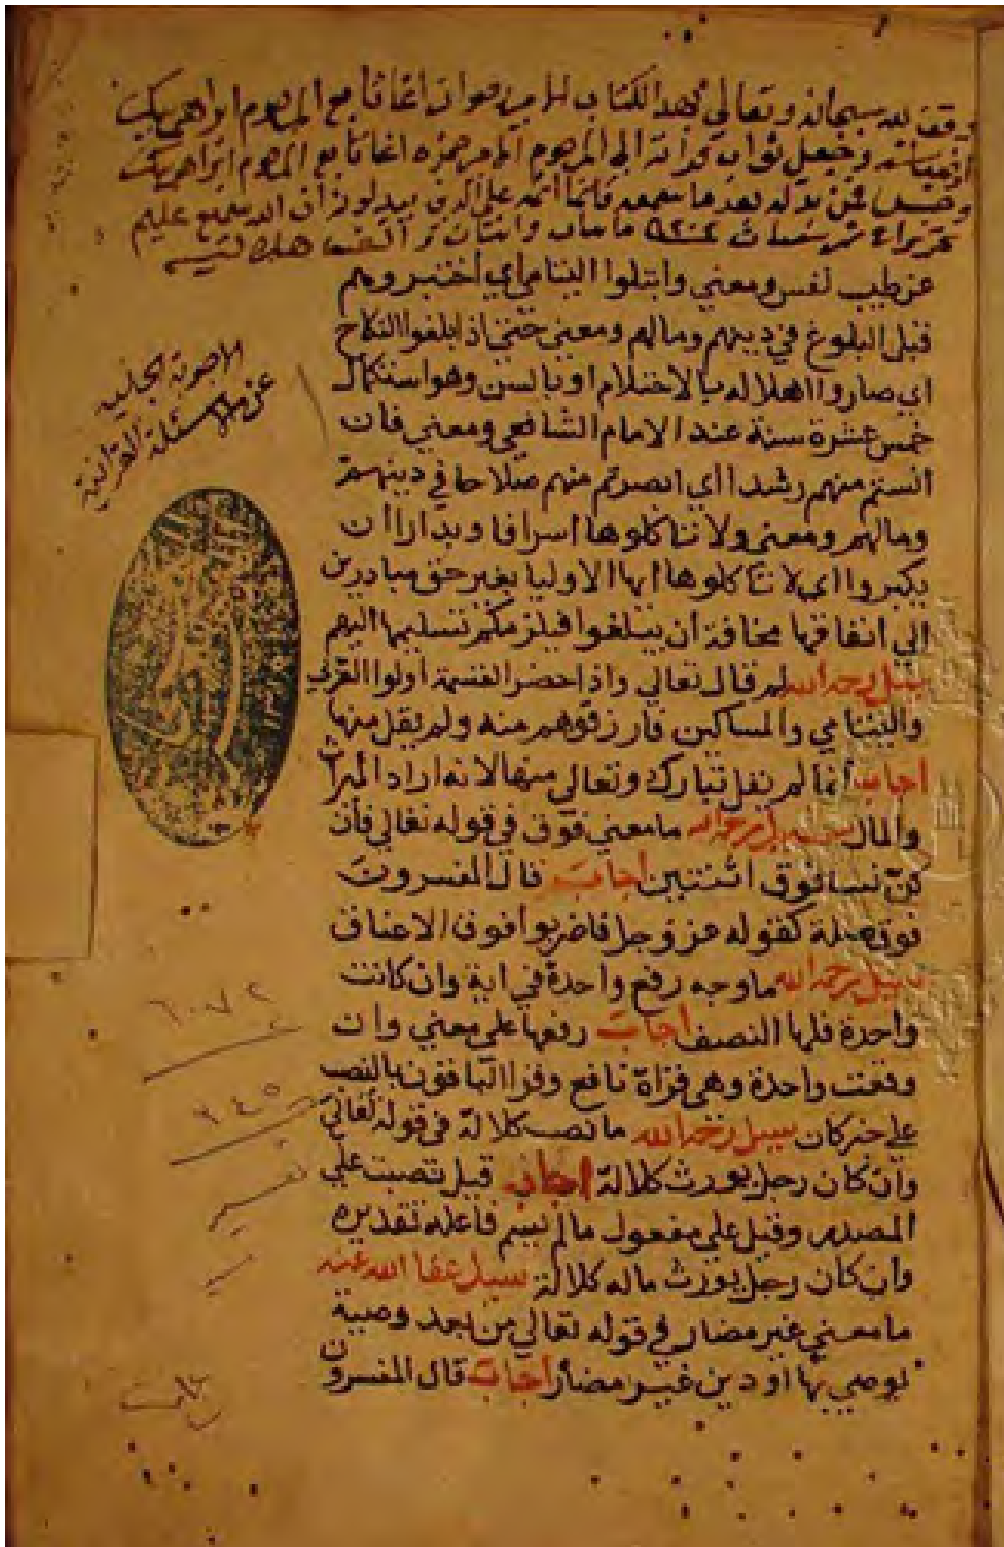 وقف لله سبحانه وتعالى هذا الكتاب الامير رضوان اغا تابع المرحوم ابراهيم بيك
وجعل ثواب قرائة الي المرحوم الامير حمزه اغا تابع المرحوم ابراهيم بيك
فمن بدله بعد ما سمعه فانما اثمه على الذين يبدلونه ان الله سميع عليم
تحريرا
عن طيب نفس ومعني وابتلوا اليتامي اي اختبروهم
قبل البلوغ في دينهم ومالهم ومعني حتي اذا بلغوا النكاح
اي صاروا اهلا له بالاحتلام او بالسن وهو استكمال
خمس عشرة سنة عند الامام الشافعي ومعني فان
انستم منهم رشدا اي ابصرتم منهم صلاحا في دينهم
ومالهم ومعني ولا تاكلوها اسرافا وبدارا ان
يكبروا اي لا تاكلوها ايها الاوليا بغير حق مبادرين
الي انفاقها مخافة ان يبلغوا فيلزمكم تسليمها اليهم
سيل رحمه الله لم قال تعالي واذا حضر القسمة اولوا القربي
واليتامي والمساكين فارزقوهم منه ولم يقل منها
اجاب انما لم يقل تبارك وتعالي منها لانه اراد الميراث
والمال سيل رحمه الله ما معني فوق في قوله تعالي فان
كن نسا فوق اثنتين اجاب قال المفسرون
فوق صلة كقوله عز وجل فاضربوا فوق الاعناق
سيل رحمه الله ما وجه رفع واحدة في اية وان كانت
واحدة فلها النصف اجاب رفعها علي معني وان
وقعت واحدة وهي قراة نافع وقرا الباقون بالنصب
علي خبر كان سيل رحمه الله ما نصب كلالة في قوله تعالي
وان كان رجل يورث كلالة اجاب قيل نصبت علي
المصدر وقيل علي مفعول ما لم يسم فاعله تقديره
وان كان رجل يورث ماله كلالة سيل عفا الله عنه
ما معني غير مضار في قوله تعالي من بعد وصية
يوصي بها او دين غير مضار اجاب قال المفسرون
الاجوبة الجليه
عن الاسئلة القرانية
تفسير